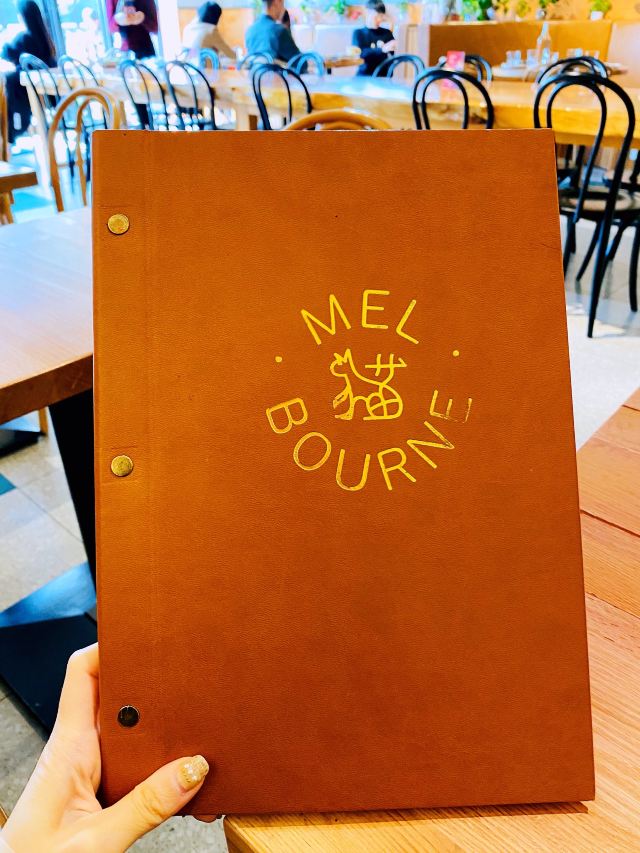 MEL
猫
BOURNE